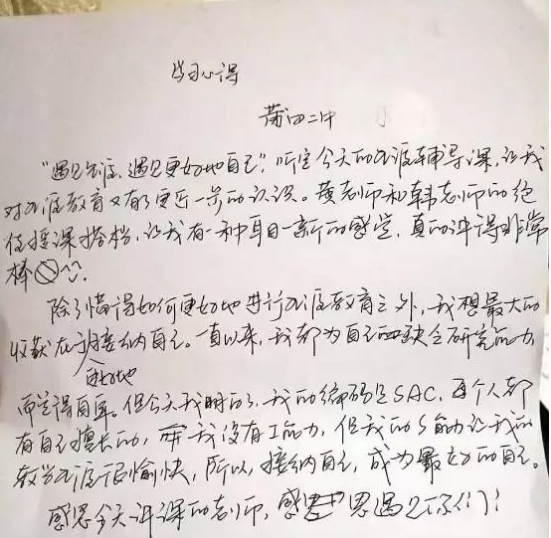 学习心得
莆田二中
“遇见生涯，遇见更好的自己”，听完今天的生涯辅导课，让我
对生涯教育又有了更近一步的认识。黄老师和韩老师的绝
佳授课搭档，让我有一种耳目一新的感觉，真的讲得非常
棒
除了懂得如何更好地进行生涯教育之外，我想最大的
收获在于更好地接纳自己。一直以来，我都为自己的缺乏研究能力
而觉得自卑。但今天我明白了，我的编码是SAC，每个人都
有自己擅长的，我没有I能力，但我的S能力让我的
教学生涯很愉快，所以，接纳自己，成为最好的自己。
感恩今天讲课的老师，感恩遇见你们！